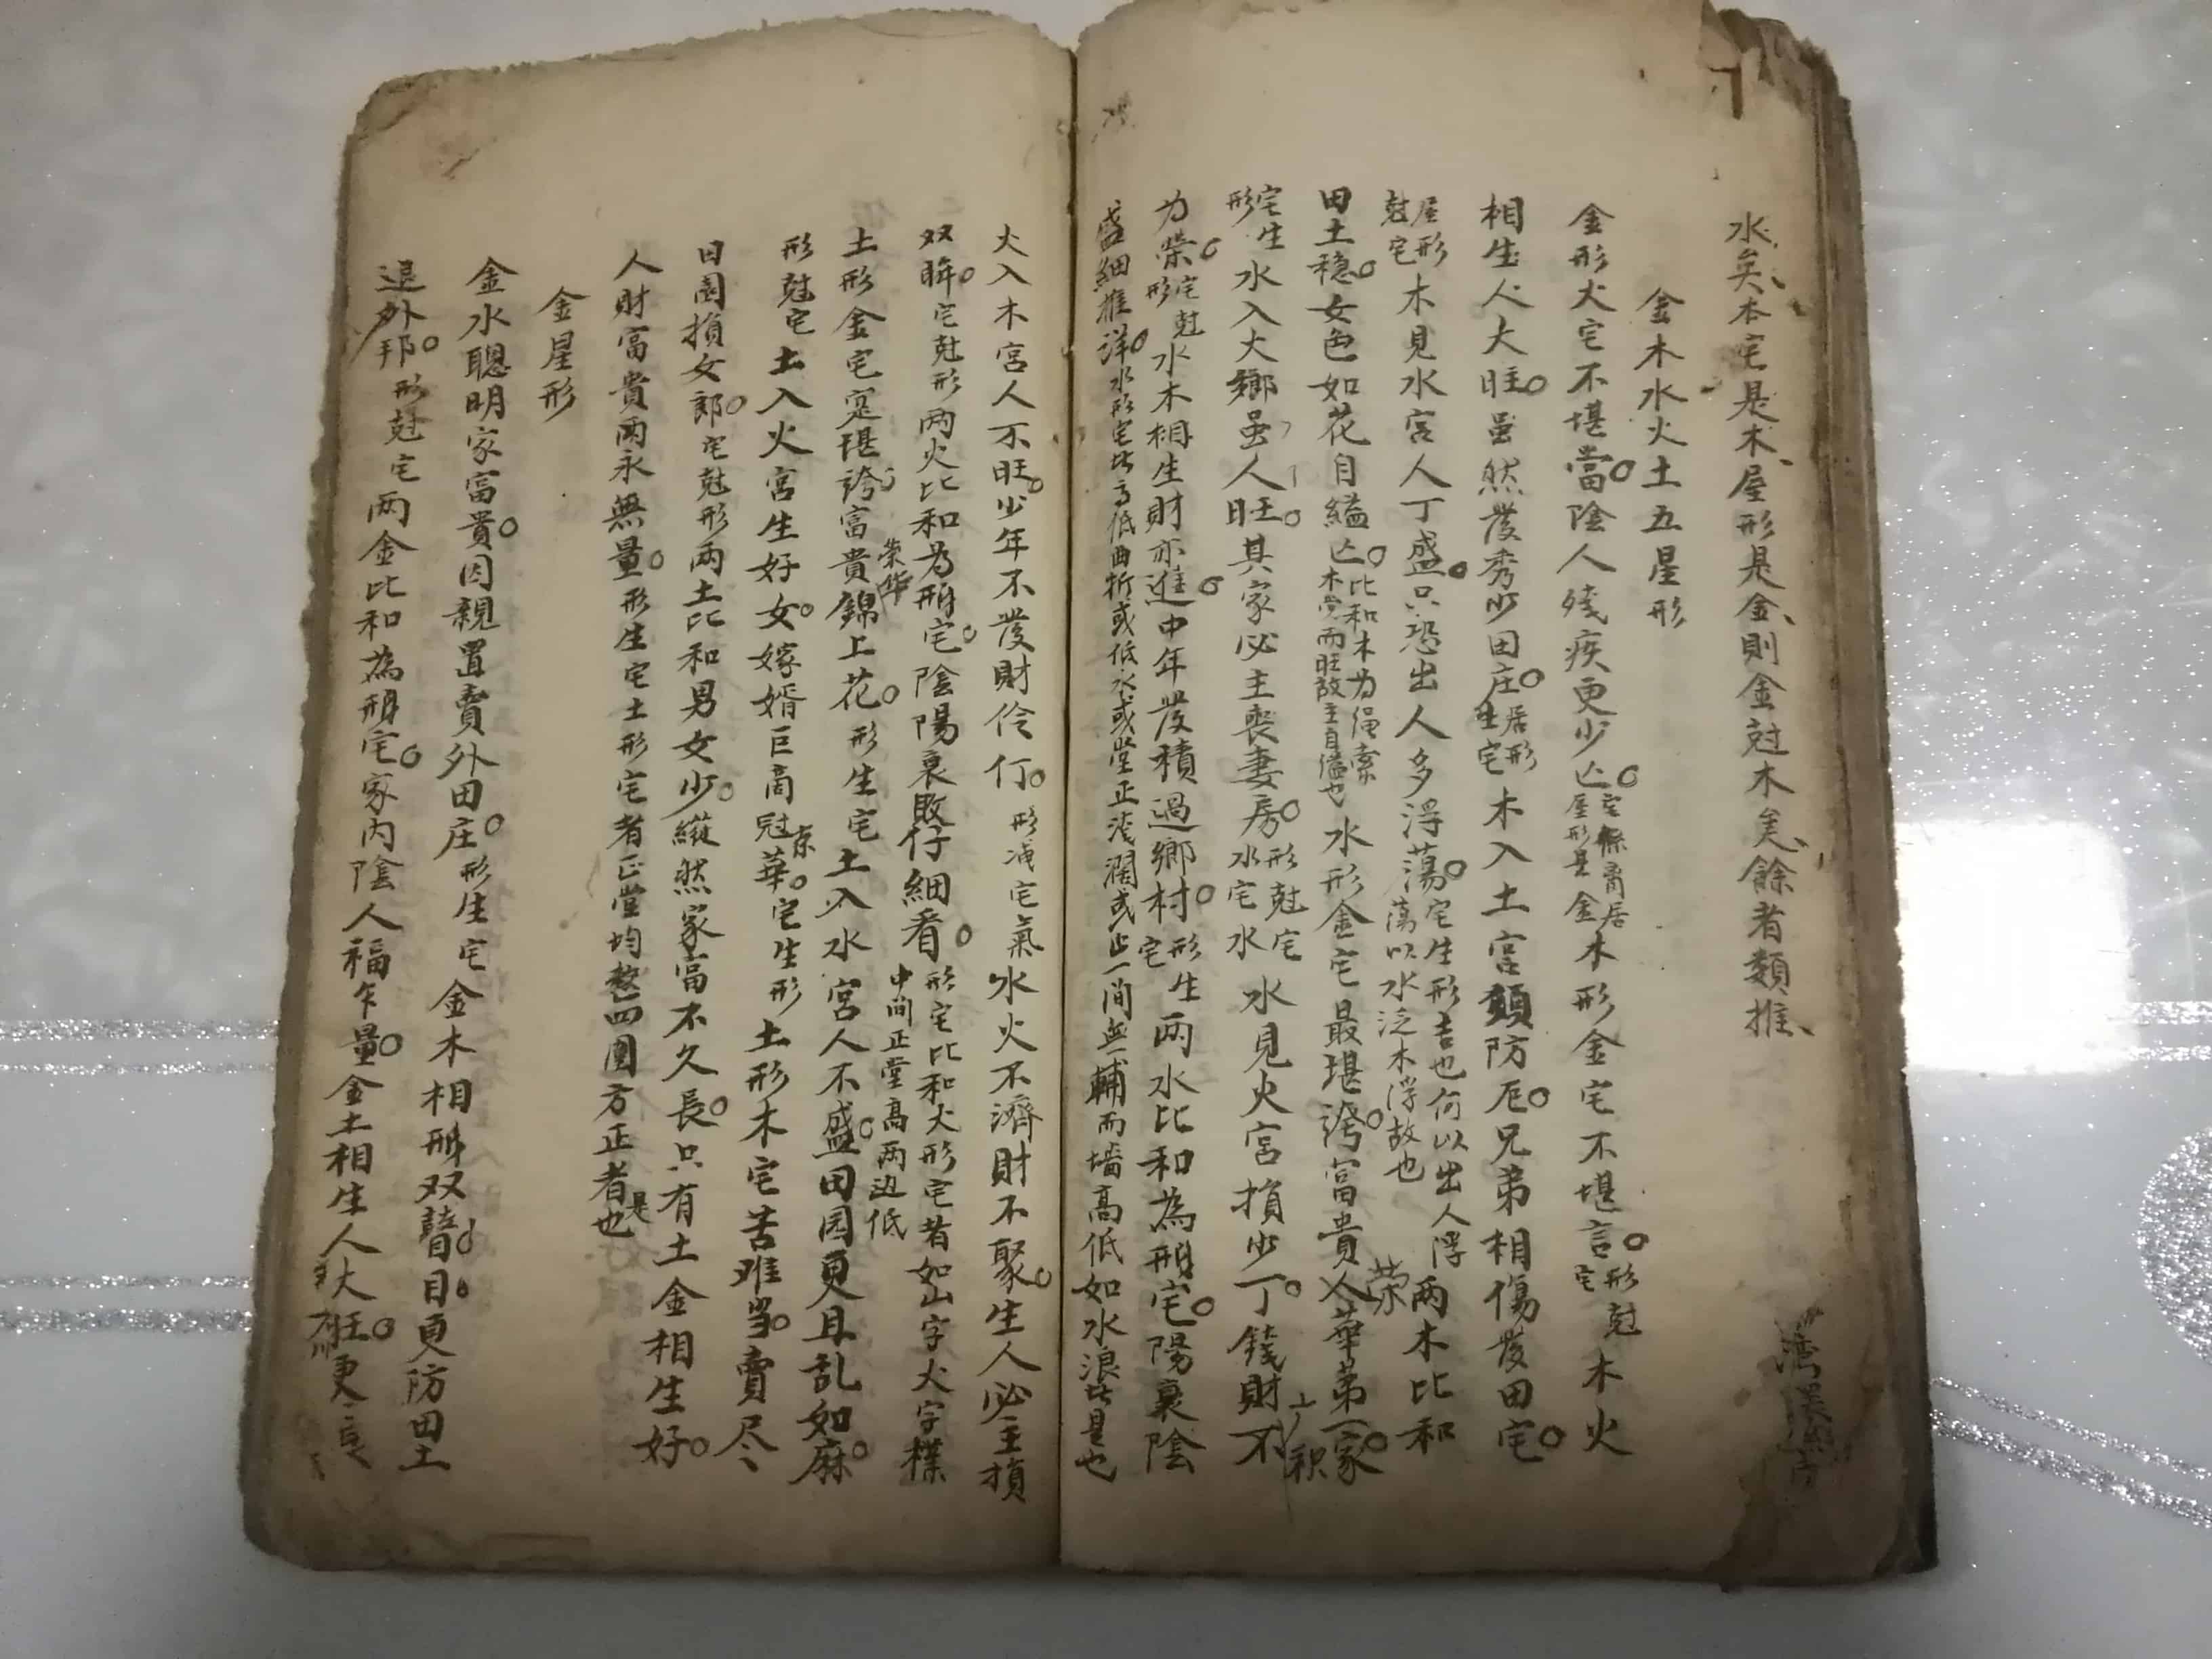 水矣本宅是木屋形是金則金尅木矣餘者類推
金木水火土五星形
金形火宅不堪當陰人殘疾更少亡屋形是金木形金宅不堪言形尅宅木火
相生人大旺虽然發秀少田庄居形生宅木入土宮須防厄兄弟相傷發田宅
屋形尅宅木見水宮人丁盛只恐出人多浮蕩宅生形吉也何以出人浮蕩以水泛木浮故也两木比和
田土穩女色如花自縊亡比和木为绳索木而旺故主自縊也水形金宅最堪誇富貴人華第一家
宅生形水入火鄉虽人旺其家必主喪妻房形尅宅水宅水水見火宮損少丁錢財不积
为荣宅尅形水木相生財亦進中年發積過鄉村形生宅两水比和為刑宅陽衰陰
盛細推詳水形宅比高低曲折或低水或堂正淺濶或止一间無輔而墻高低如水浪比是也
火入木宮人不旺少年不發財伶仃形洩宅氣水火不濟財不聚生人必主損
双眸宅尅形两火比和为刑宅陰陽衰敗仔细看形宅比和火形宅者如山字火字樣中间正堂高两边低
土形金宅寔堪誇富貴荣华錦上花形生宅土入水宮人不盛田园更且乱如麻
形尅宅土入火宮生好女嫁婿巨商冠京華宅生形土形木宅苦难当賣尽
田園損女郎宅尅形两土比和男女少縱然家富不久長只有土金相生好
人財富貴两永無量形生宅土形宅者正堂均整四圍方正者是也
金星形
金水聰明家富貴因親置賣外田庄形生宅金木相刑双瞽目更防田土
退外邦形尅宅两金比和為刑宅家内陰人福乍量金土相生人大旺更